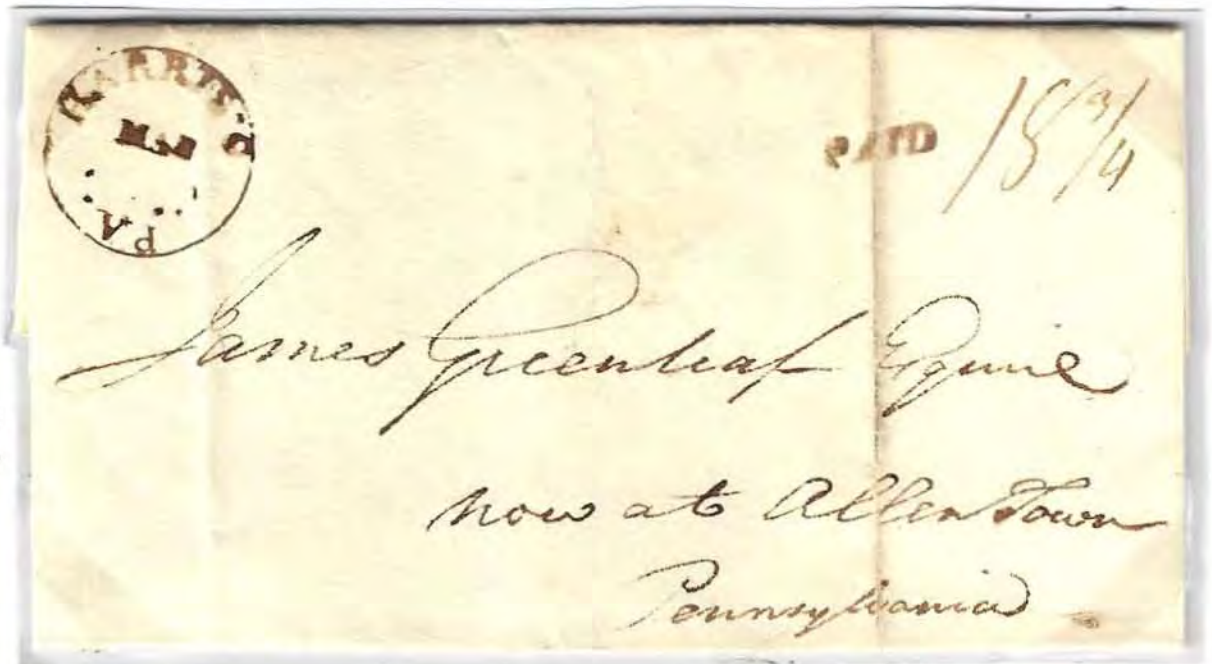 HARRISB
PA
PAID
18 3/4
James Greenleaf Esquire
now at Allen Town
Pennsylvania